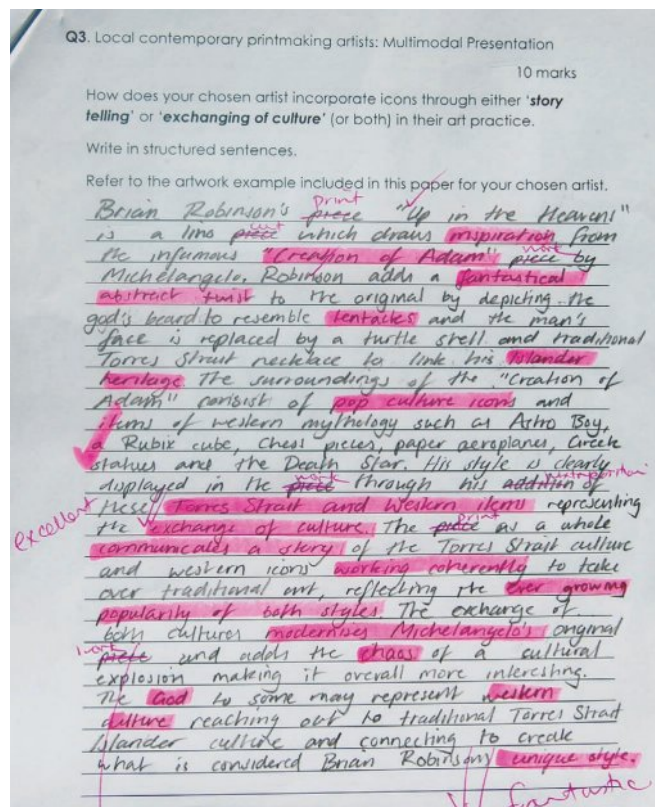 Q3. Local contemporary printmaking artists: Multimodal Presentation
10 marks
How does your chosen artist incorporate icons through either 'story
telling' or 'exchanging of culture' (or both) in their art practice.
Write in structured sentences.
Refer to the artwork example included in this paper for your chosen artist.
print
Brian Robinson's piece "Up in the Heavens"
cut
is a lino piece which draws inspiration from
work
the infamous "Creation of Adam" piece by
Michelangelo. Robinson adds a fantastical
abstract twist to the original by depicting the
god's beard to resemble tentacles and the man's
face is replaced by a turtle shell and traditional
Torres Strait necklace to link his Islander
heritage. The surroundings of the "Creation of
Adam" consist of pop culture icons and
items of western mythology such as Astro Boy,
a Rubix cube, Chess pieces, paper aeroplanes, Greek
statues and the Death Star. His style is clearly
work juxtaposition
displayed in the piece through his addition of
excellent
these Torres Strait and Western items representing
print
the exchange of culture. The piece as a whole
communicates a story of the Torres Strait culture
and western icons working coherently to take
over traditional art, reflecting the ever growing
popularity of both styles. The exchange of
both cultures modernises Michelangelo's original
work
piece and adds the chaos of a cultural
explosion making it overall more interesting.
The God to some may represent western
culture reaching out to traditional Torres Strait
Islander culture and connecting to create
what is considered Brian Robinsons unique style.
fantastic